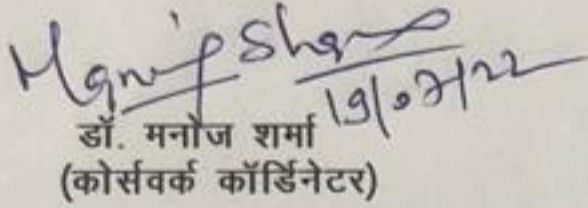 Manoj Sharma
19/07/22
डॉ. मनोज शर्मा
(कोर्सवर्क कॉर्डिनेटर)